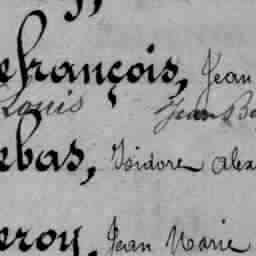 efrançois, Jean
Louis Jean Ba
ebas, Isidore Alex
eroy, Jean Marie